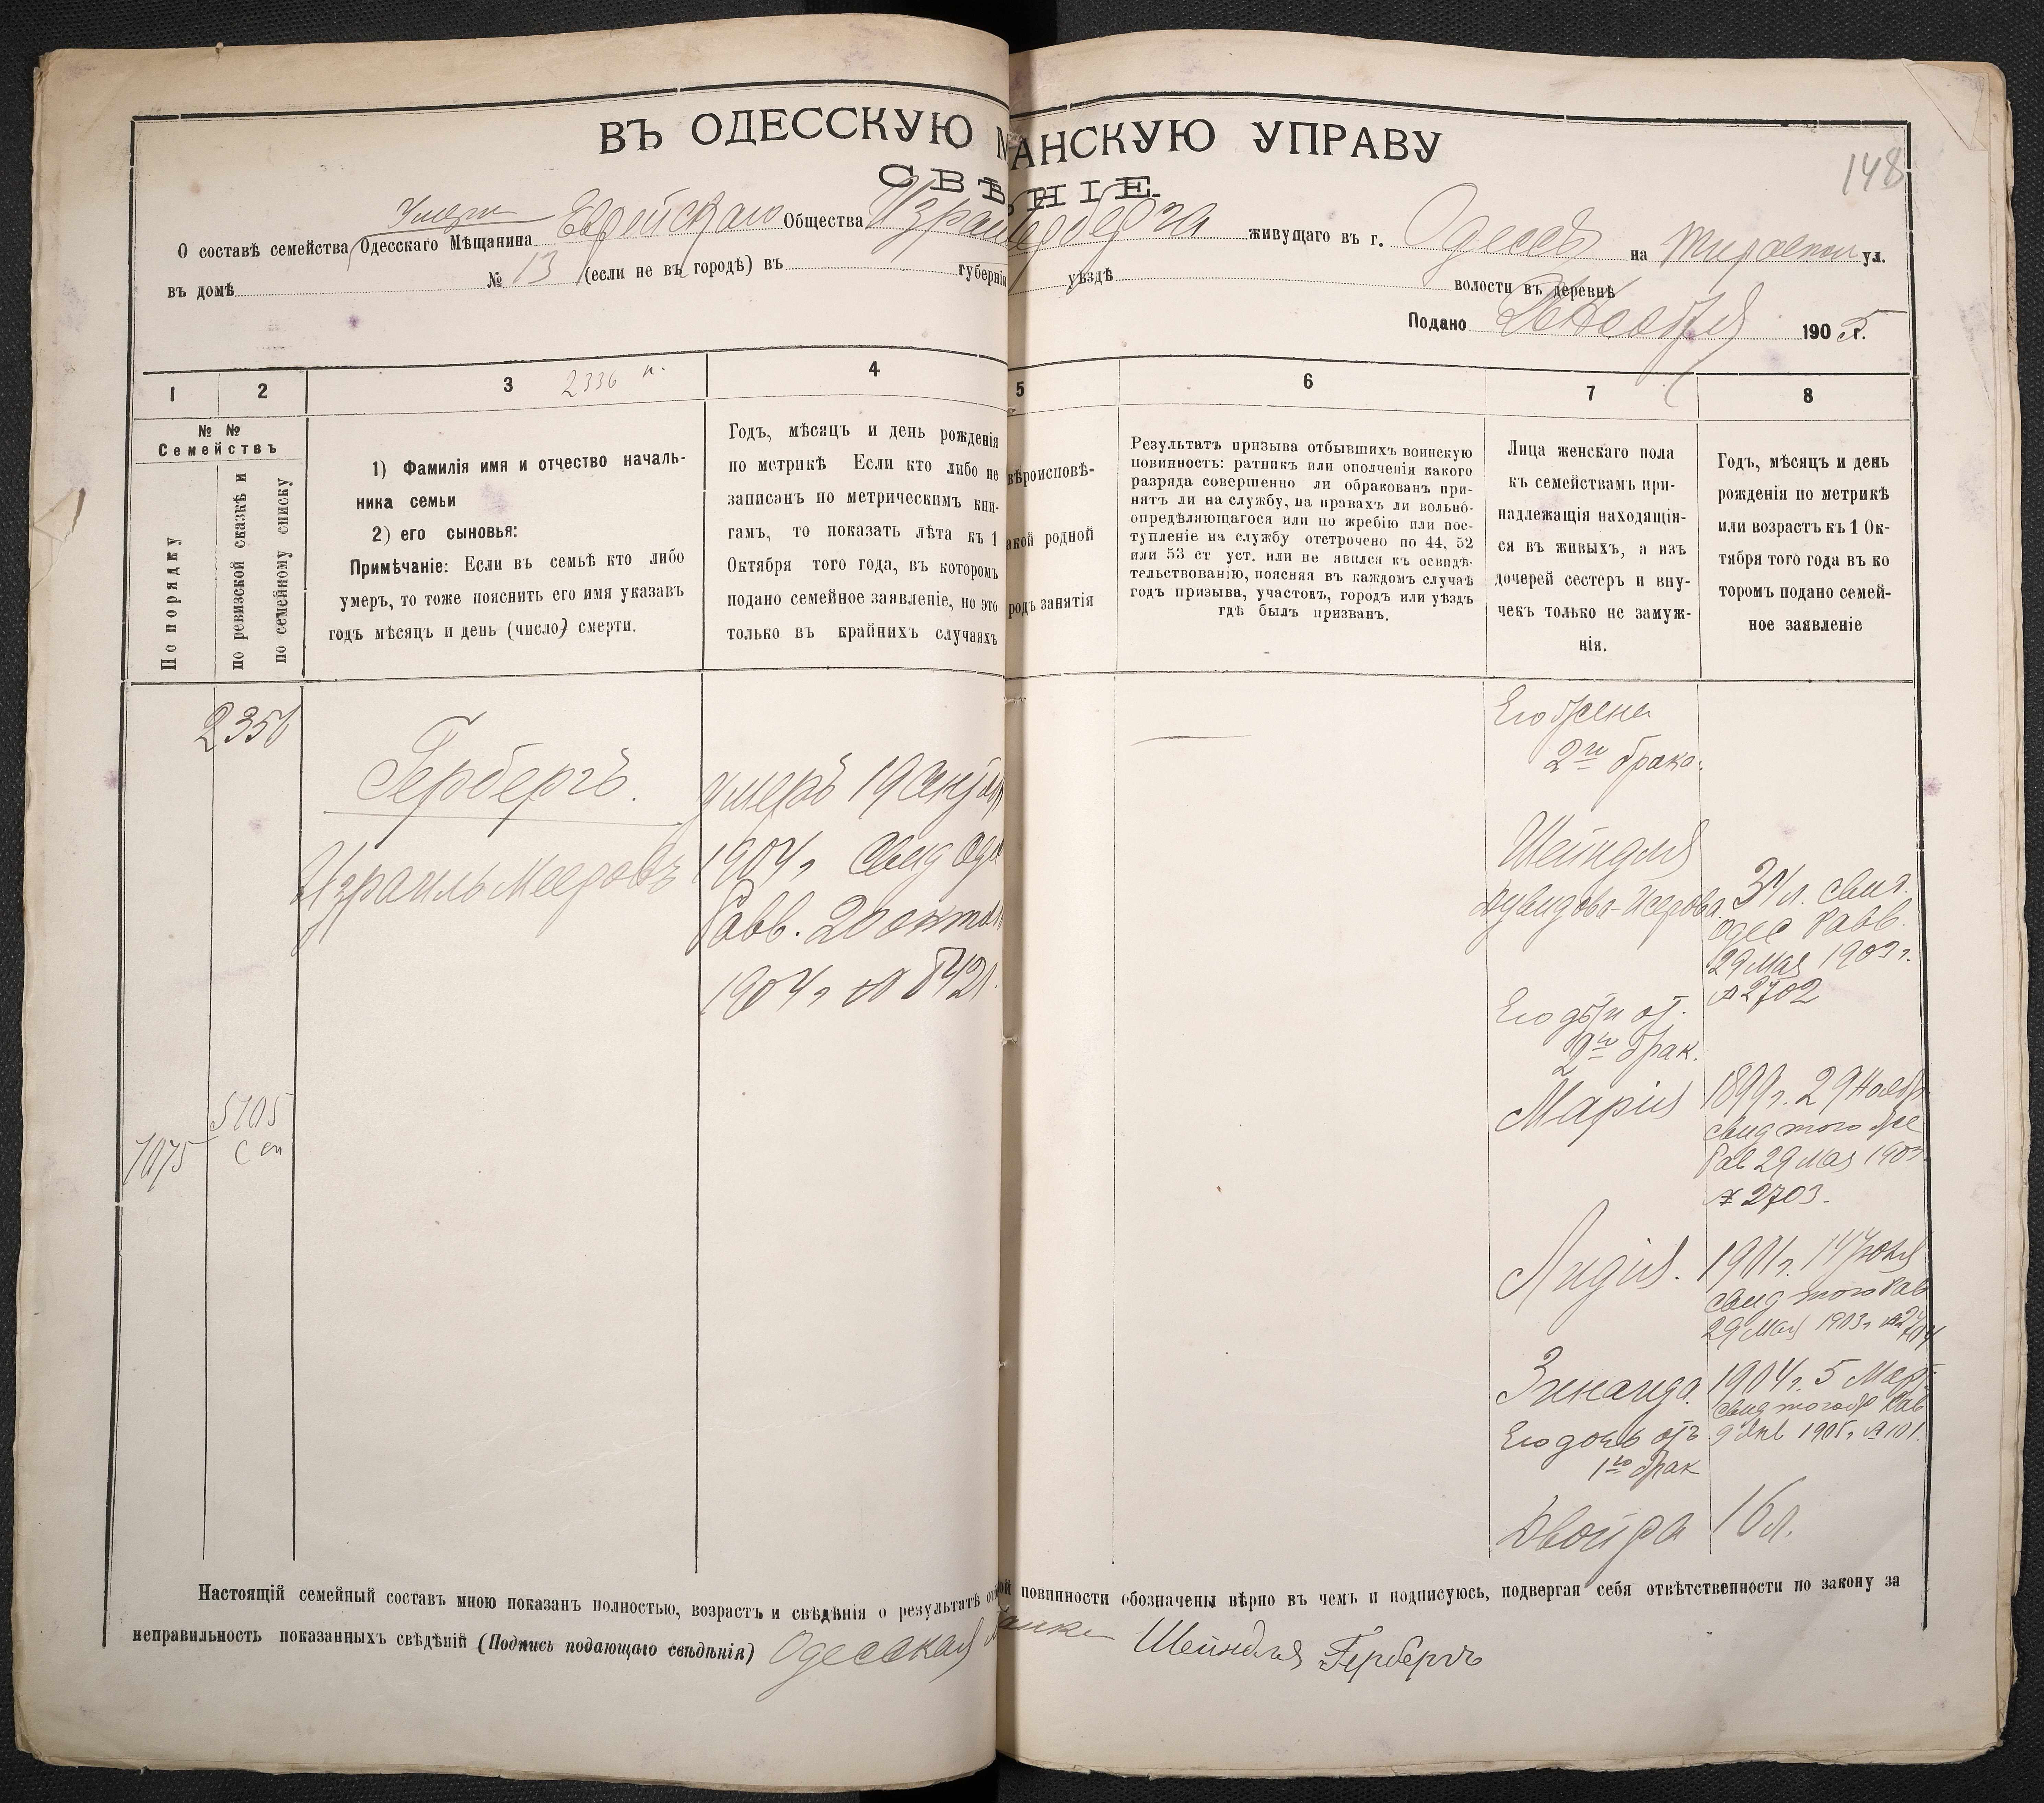 148
ВЪ ОДЕССКУЮ М АНСКУЮ УПРАВУ
СВѢ НІЕ.
О составѣ семейства Умерш Одесскаго Мѣщанина Еврейскаго Общества Израи Герберга живущаго въ г. Одессѣ на ул.
въ домѣ № 13 (если не въ городѣ) въ губерніи уѣздѣ волости въ деревнѣ
Подано 2 Ноября 1905 г.
1 2 3 2336 н. 4 5 6 7 8
№ №
Семействъ
По порядку
по ревизской сказкѣ и
по семейному списку
1) Фамилія имя и отчество началь-
ника семьи
2) его сыновья:
Примѣчаніе: Если въ семьѣ кто либо
умеръ, то тоже пояснить его имя указавъ
годъ мѣсяцъ и день (число) смерти.
Годъ, мѣсяцъ и день рожденія
по метрикѣ Если кто либо не
записанъ по метрическимъ кни-
гамъ, то показать лѣта къ 1
Октября того года, въ которомъ
подано семейное заявленіе, но это
только въ крайнихъ случаяхъ
вѣроисповѣ-
акой родной
родъ занятія
Результатъ призыва отбывшихъ воинскую
повинность: ратникъ или ополченія какого
разряда совершенно ли обракованъ при-
нятъ ли на службу, на правахъ ли вольно-
опредѣляющагося или по жребію или пос-
тупленіе на службу отстрочено по 44, 52
или 53 ст уст. или не явился къ освидѣ-
тельствованію, поясняя въ каждомъ случаѣ
годъ призыва, участокъ, городъ или уѣздъ
гдѣ былъ призванъ.
Лица женскаго пола
къ семействамъ при-
надлежащія находящія-
ся въ живыхъ, а изъ
дочерей сестеръ и вну-
чекъ только не замуж-
нія.
Годъ, мѣсяцъ и день
рожденія по метрикѣ
или возрастъ къ 1 Ок-
тября того года въ ко
торомъ подано семей-
ное заявленіе
2356
Гербергъ.
Израиль Мееровъ
умеръ 19 Сентяб
1904 г. Свид Оде
Равв. 20 октяб
1904 г. № 8421.
7075
5705
С сп
Его жена
2го брака.
Шейндля
Дувидова-Исерова.
34 л. свид.
Одес Равв.
29 Мая 1903 г.
№ 2702
Его дѣти от.
2го брак.
Марія
1899 г. 29 Ноябр
свид того же
Рав 29 Мая 1903
№ 2703.
Лидія.
1901 г. 14 Іюня
свид того Рав
29 Мая 1903 г. № 2704
Зинаида.
1904 г. 5 Март
свид того ж Рав
9 Янв 1905 г. № 101.
Его дочь отъ
1го брак
Двойра
16 л.
Настоящій семейный составъ мною показанъ полностью, возрастъ и свѣдѣнія о результатѣ от ой повинности обозначены вѣрно въ чемъ и подписуюсь, подвергая себя отвѣтственности по закону за
неправильность показанныхъ свѣдѣній (Подпись подающаго свѣдѣнія) Одесская Шейндля Гербергъ